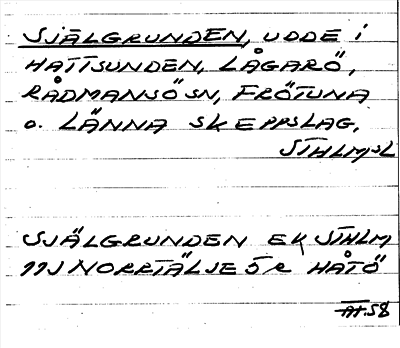 SJÄLGRUNDEN, UDDE I
HATTSUNDEN, LÅGARÖ,
RÅDMANSÖ SN, FRÖTUNA
O. LÄNNA SKEPPSLAG,
STHLMSL
SJÄLGRUNDEN EK STHLM
11J NORRTÄLJE 5 R HÅTÖ
58